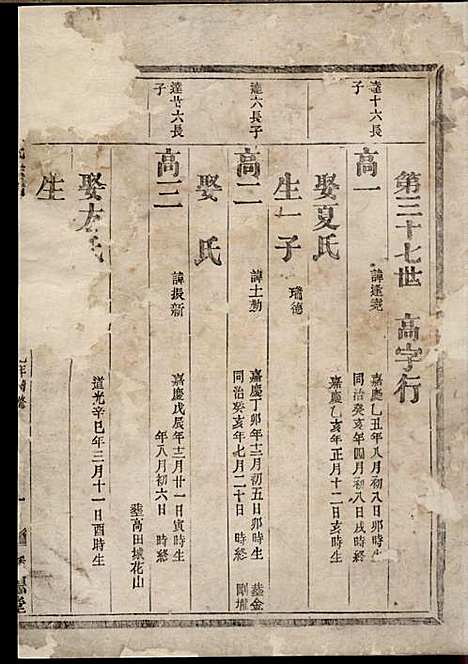 第三十七世　高字行
達十六長子
高一
諱達堯
嘉慶乙丑年八月初八日卯時生
同治癸亥年四月初八日戌時終
娶夏氏
嘉慶乙亥年正月十二日亥時生
生一子
瑞德
達六長子
高二
諱士勤
嘉慶丁卯年十二月初五日卯時生
同治癸亥年七月二十日　時終
葬金剛壠
娶　氏
達廿六長子
高三
諱振新
嘉慶戊辰年十二月廿一日寅時生
年八月初六日　時終
葬高田城花山
娶左氏
道光辛巳年三月十一日酉時生
生